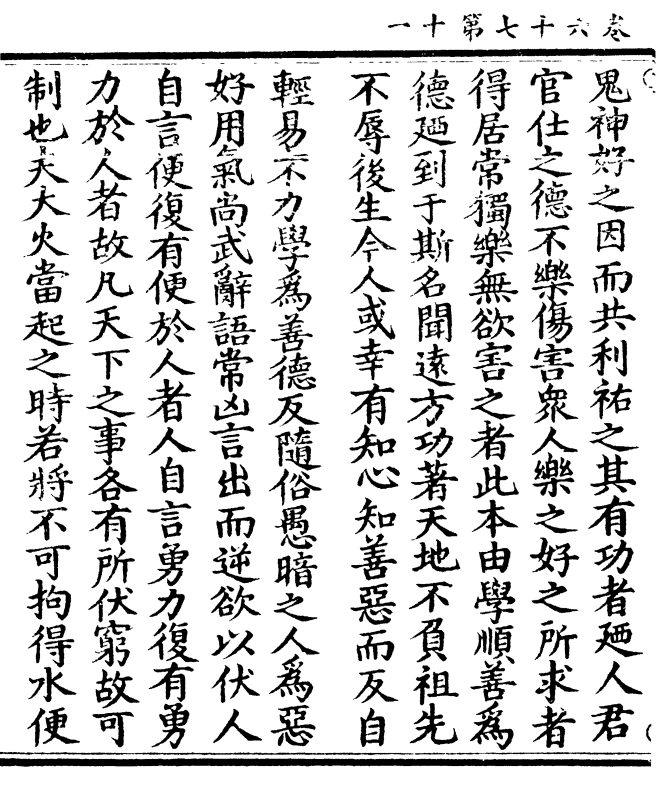 卷六十七第十一
鬼神好之因而共利祐之其有功者廼人君
官仕之德不樂傷害衆人樂之好之所求者
得居常獨樂無欲害之者此本由學順善爲
德廼到于斯名聞遠方功著天地不負祖先
不辱後生今人或幸有知心知善惡而反自
輕易不力學爲善德反隨俗愚暗之人爲惡
好用氣尚武辭語常凶言出而逆欲以伏人
自言便復有便於人者人自言勇力復有勇
力於人者故凡天下之事各有所伏窮故可
制也天大火當起之時若將不可拘得水便